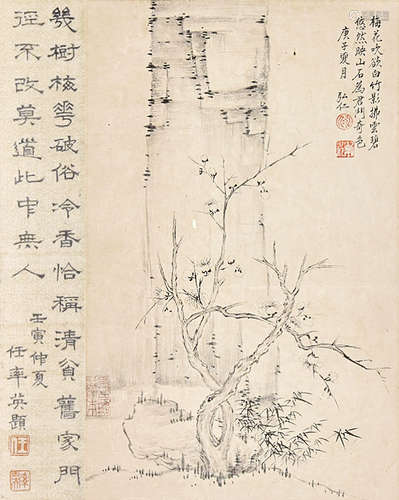 梅花吹欲白竹影拂雲碧
悠然映山石為君鬥奇色
庚子夏月 弘仁
幾樹梅花破俗冷香恰稱清貧舊家門
徑不改莫道此中無人
壬寅仲夏
任率英題